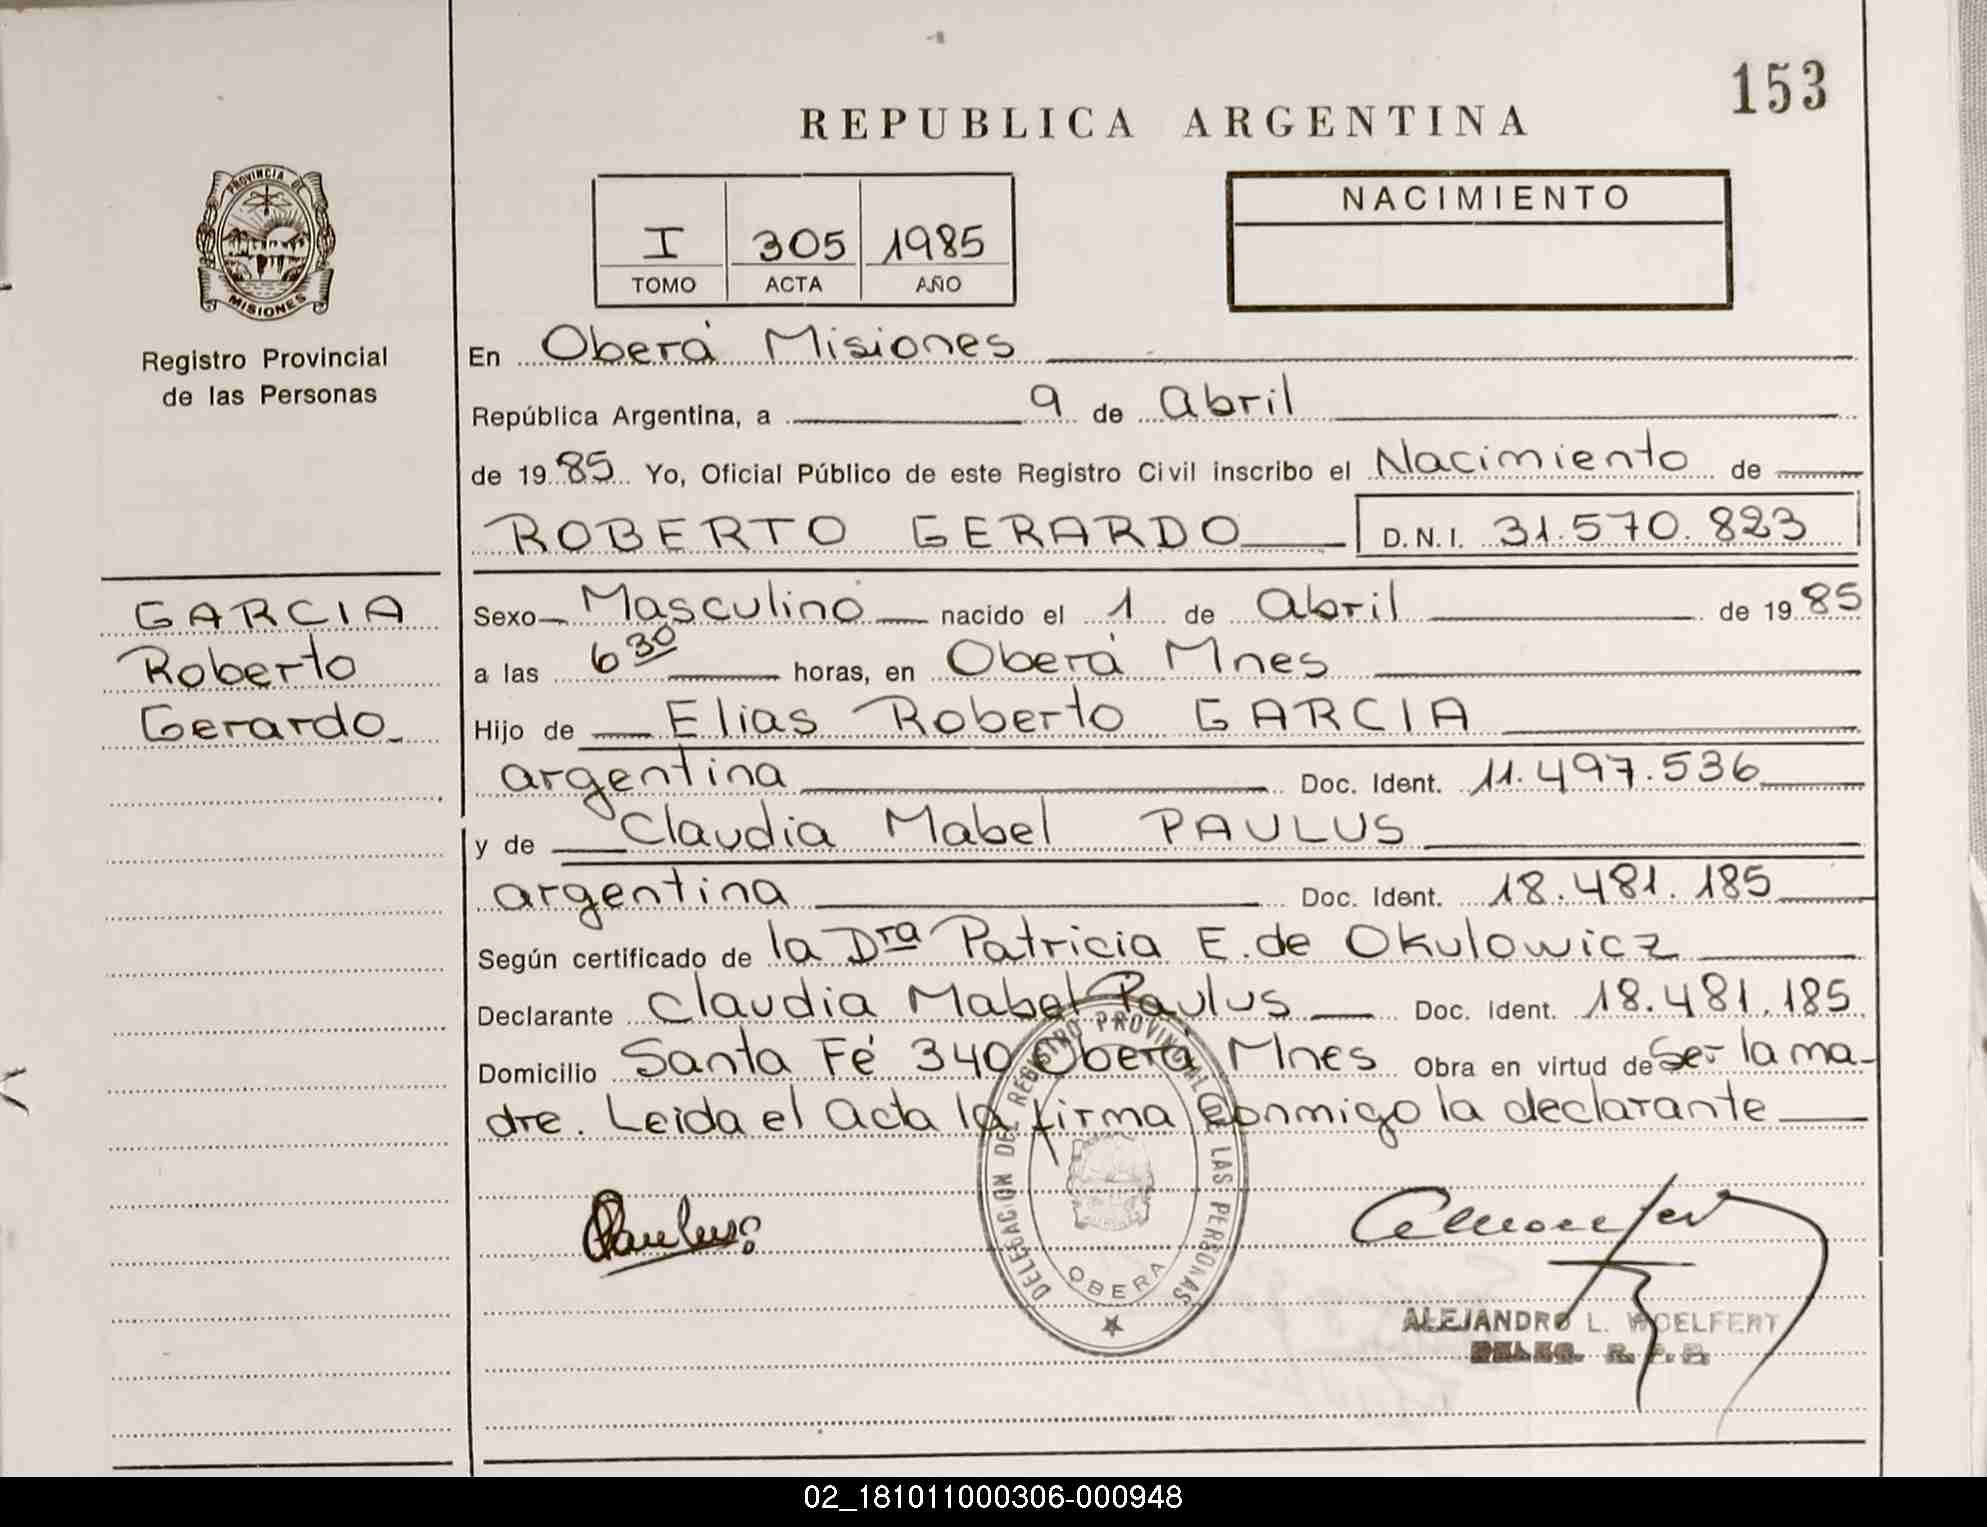 153
REPUBLICA ARGENTINA
PROVINCIA DE
MISIONES
Registro Provincial
de las Personas
I 305 1985
TOMO ACTA AÑO
NACIMIENTO
En Oberá Misiones
República Argentina, a 9 de Abril
de 1985 Yo, Oficial Público de este Registro Civil inscribo el Nacimiento de
ROBERTO GERARDO D.N.I. 31.570.823
GARCIA
Roberto
Gerardo
Sexo Masculino nacido el 1 de Abril de 1985
a las 6 30 horas, en Oberá Mnes
Hijo de Elias Roberto GARCIA
argentina Doc. Ident. 11.497.536
y de Claudia Mabel PAULUS
argentina Doc. Ident. 18.481.185
Según certificado de la Dra Patricia E. de Okulowicz
Declarante Claudia Mabel Paulus Doc. Ident. 18.481.185
Domicilio Santa Fé 340 Oberá Mnes Obra en virtud de Ser la ma-
dre. Leida el Acta la firma conmigo la declarante
DELEGACIÓN DEL REGISTRO PROVINCIAL DE LAS PERSONAS
OBERA
Paulus
ALEJANDRO L. WOELFERT
DELEG. R. P. P.
02_181011000306-000948